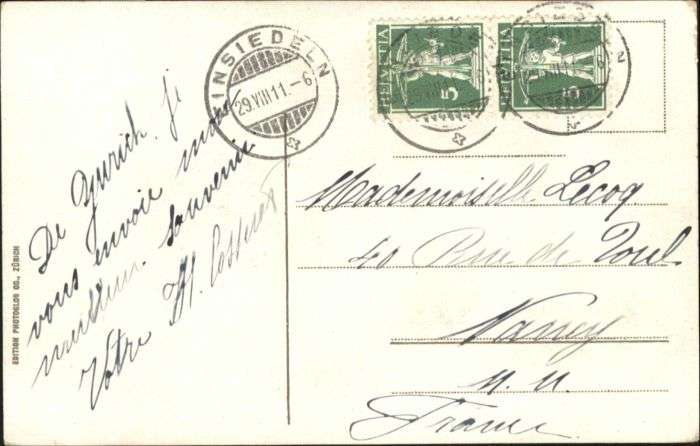 EINSIEDELN
29.VIII.11.-6
HELVETIA
5
HELVETIA
5
De Zurich, je
vous envoie mon
meilleur souvenir
Votre
EDITION PHOTOGLOB CO., ZÜRICH
Mademoiselle Lecoq
40 Rue de Toul
Nancy
France